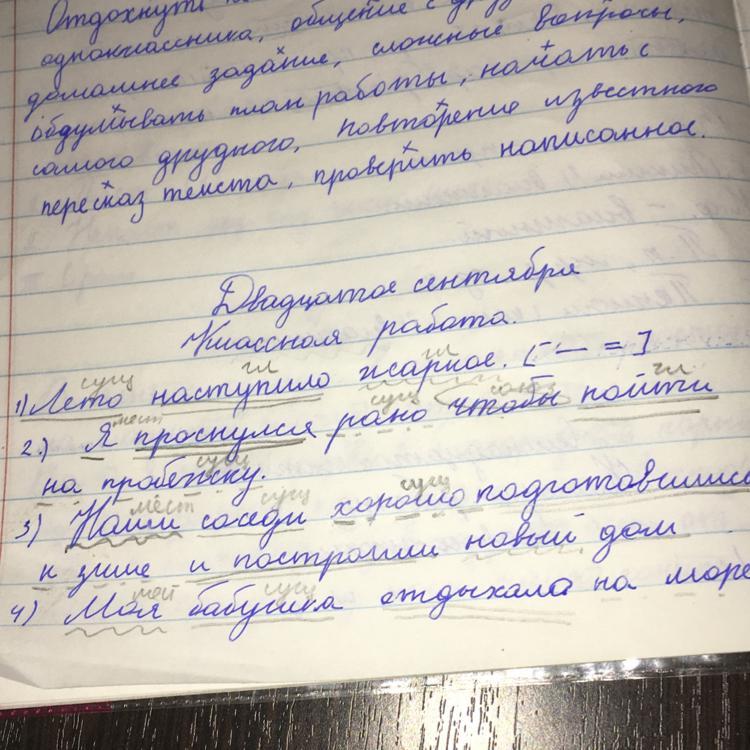 Отдохнуть
одноклассника, общение с
домашнее задание, сложные вопросы,
обдумывать план работы, начать с
самого друдного, повторение известного
пересказ текста, проверить написанное.
Двадцатое сентября
Классная работа.
сущ гл гл
1) Лето наступило жаркое. [ — = ]
мест сущ союз гл
2.) Я проснулся рано чтобы пойти
сущ
на пробежку.
мест сущ сущ
3) Наши соседи хорошо подготовились
к зиме и построили новый дом
мой сущ
4) Моя бабушка отдыхала на море